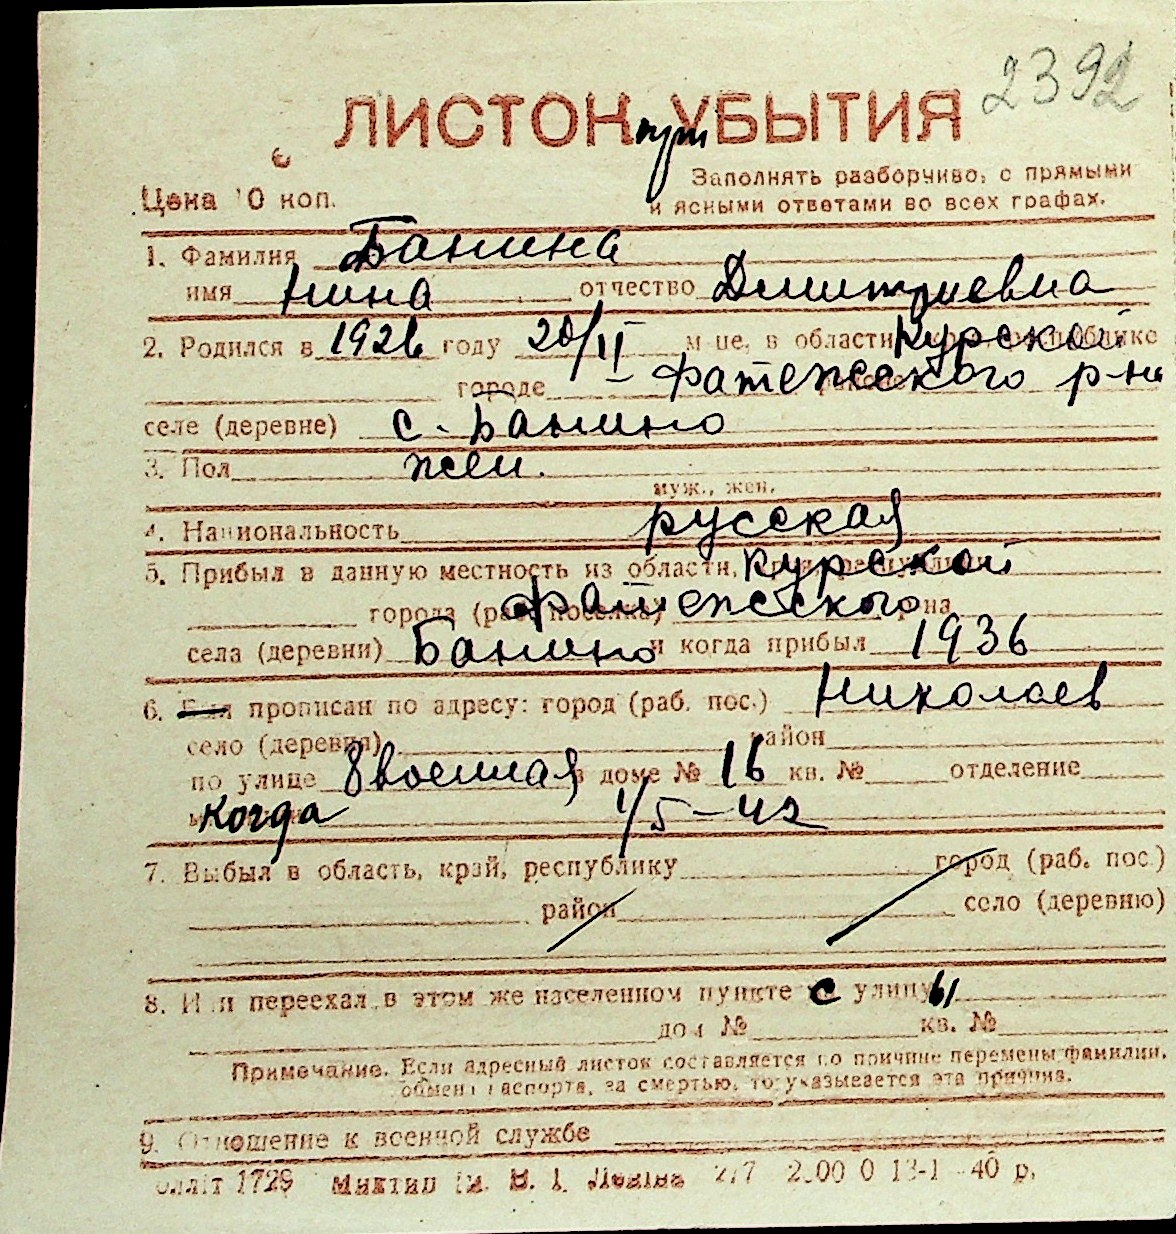 2392
ЛИСТОК при УБЫТИЯ
Цена 10 коп.
Заполнять разборчиво, с прямыми
и ясными ответами во всех графах.
1. Фамилия Банина
имя Нина отчество Дмитриевна
2. Родился в 1926 году 20/II м-це, в области, Курской республике
городе – Фатежского р-на
селе (деревне) с. Банино
3. Пол жен.
муж., жен.
4. Национальность русская
5. Прибыл в данную местность из области, Курской
города (раб. поселка) Фатежского р-на
села (деревни) Банино и когда прибыл 1936
6. Был прописан по адресу: город (раб. пос.) Николаев
село (деревня) район
по улице 8 военная в доме № 16 кв. № отделение
когда 1/5-42
7. Выбыл в область, край, республику город (раб. пос.)
район село (деревню)
8. Или переехал в этом же населенном пункте с улицы
дом № кв. №
Примечание. Если адресный листок составляется по причине перемены фамилии,
обмена паспорта, за смертью, то указывается эта причина.
9. Отношение к военной службе
1729 им. В. І. Леніна 2/7 2.00 0 13-1 40 р.